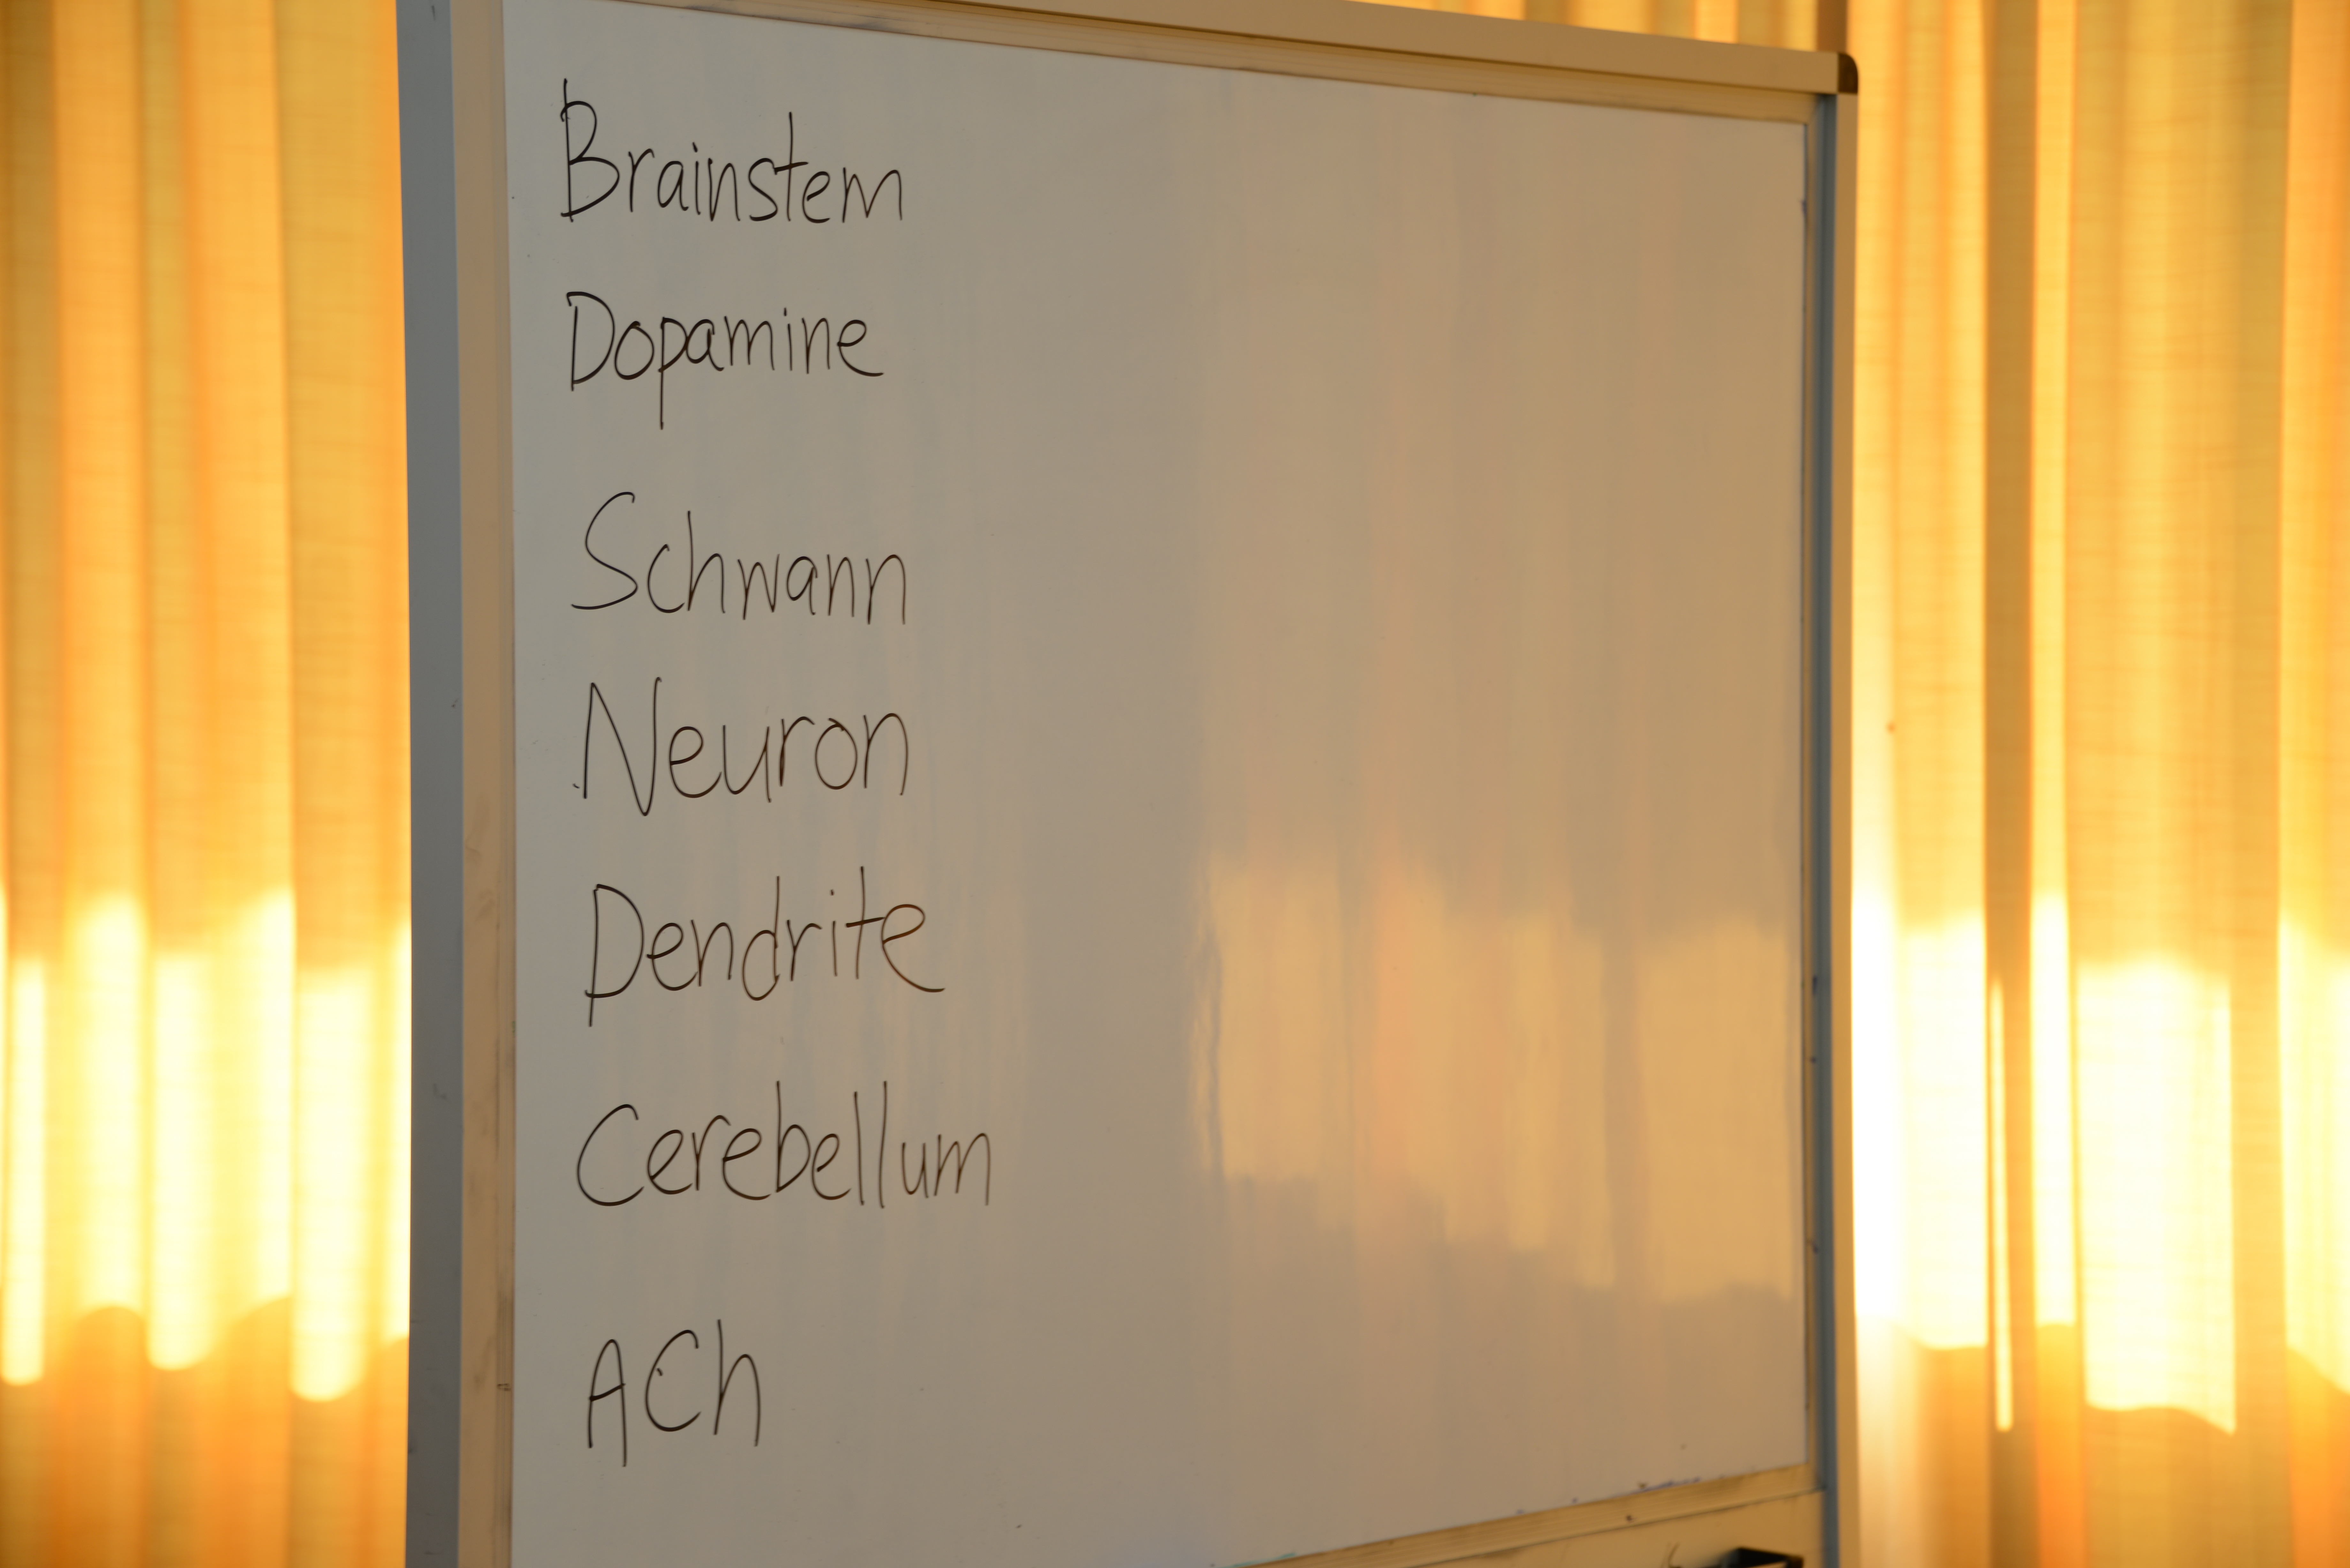 Brainstem
Dopamine
Schwann
Neuron
Dendrite
Cerebellum
ACh